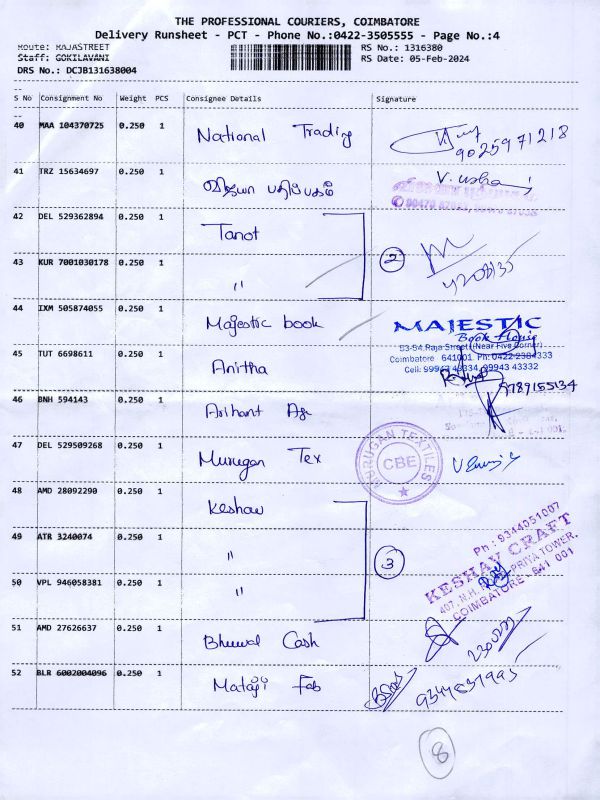 THE PROFESSIONAL COURIERS, COIMBATORE
Delivery Runsheet - PCT - Phone No.:0422-3505555 - Page No.:4
Route: RAJASTREET RS No.: 1316380
Staff: GOKILAVANI RS Date: 05-Feb-2024
DRS No.: DCJB131638004
S No Consignment No Weight PCS Consignee Details Signature
40 MAA 104370725 0.250 1 National Trading 9025971218
41 TRZ 15634697 0.250 1 வித்யா பதிப்பகம் V. usha
42 DEL 529362894 0.250 1 Tanot
43 KUR 7001030178 0.250 1 〃 2
44 IXM 505874055 0.250 1 Majestic book MAJESTIC
Book House
53-54, Raja Street (Near Five Corner)
Coimbatore 641001 Ph: 0422 2384333
Cell: 99943 43334, 99943 43332
45 TUT 6698611 0.250 1 Anitha 9789155134
46 BNH 594143 0.250 1 Arihant Age
47 DEL 529509268 0.250 1 Murugan Tex MURUGAN TEXTILES CBE
48 AMD 28092290 0.250 1 Keshav
49 ATR 3240074 0.250 1 〃 3 Ph : 9344051007
KESHAV CRAFT
50 VPL 946058381 0.250 1 〃 407, N.H. PRIYA TOWER,
COIMBATORE - 641 001
51 AMD 27626637 0.250 1 Bhuwal Cash
52 BLR 6002004096 0.250 1 Mataji Fab
8